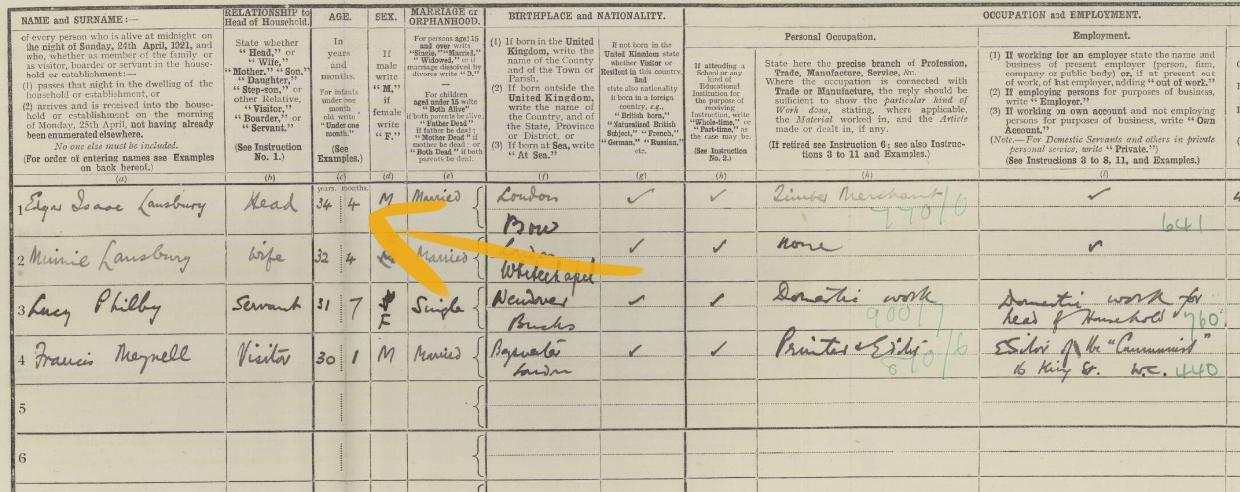 NAME and SURNAME :—
of every person who is alive at midnight on
the night of Sunday, 24th April, 1921, and
who, whether as member of the family or
as visitor, boarder or servant in the house-
hold or establishment :—
(1) passes that night in the dwelling of the
household or establishment, or
(2) arrives and is received into the house-
hold or establishment on the morning
of Monday, 25th April, not having already
been enumerated elsewhere.
No one else must be included.
(For order of entering names see Examples
on back hereof.)
(a)
RELATIONSHIP to
Head of Household.
State whether
"Head," or
"Wife,"
"Mother," "Son,"
"Daughter,"
"Step-son," or
other Relative,
"Visitor,"
"Boarder," or
"Servant."
(See Instruction
No. 1.)
(b)
AGE.
In
years
and
months.
For infants
under one
month
old write
"Under one
month."
(See
Examples.)
(c)
years. months.
SEX.
If
male
write
"M,"
if
female
write
"F."
(d)
MARRIAGE or
ORPHANHOOD.
For persons aged 15
and over write
"Single," "Married,"
"Widowed," or if
marriage dissolved by
divorce write "D."
For children
aged under 15 write
"Both Alive"
if both parents be alive;
"Father Dead"
if father be dead;
"Mother Dead" if
mother be dead; or
"Both Dead" if both
parents be dead.
(e)
BIRTHPLACE and NATIONALITY.
(1) If born in the United
Kingdom, write the
name of the County
and of the Town or
Parish.
(2) If born outside the
United Kingdom,
write the name of
the Country, and of
the State, Province
or District, or
(3) If born at Sea, write
"At Sea."
(f)
If not born in the
United Kingdom state
whether Visitor or
Resident in this country,
and
state also nationality
if born in a foreign
country, e.g.,
"British born,"
"Naturalized British
Subject," "French,"
"German," "Russian,"
etc.
(g)
If attending a
School or any
kind of
Educational
Institution for
the purpose of
receiving
Instruction, write
"Whole-time," or
"Part-time," as
the case may be.
(See Instruction
No. 2.)
(h)
OCCUPATION and EMPLOYMENT.
Personal Occupation.
State here the precise branch of Profession,
Trade, Manufacture, Service, &c.
Where the occupation is connected with
Trade or Manufacture, the reply should be
sufficient to show the particular kind of
Work done, stating, where applicable,
the Material worked in, and the Article
made or dealt in, if any.
(If retired see Instruction 6; see also Instruc-
tions 3 to 11 and Examples.)
(k)
Employment.
(1) If working for an employer state the name and
business of present employer (person, firm,
company or public body) or, if at present out
of work, of last employer, adding "out of work."
(2) If employing persons for purposes of business,
write "Employer."
(3) If working on own account and not employing
persons for purposes of business, write "Own
Account."
(Note.—For Domestic Servants and others in private
personal service, write "Private.")
(See Instructions 3 to 8, 11, and Examples.)
(l)
1 Edgar Isaac Lansbury Head 34 4 M Married London ✓ ✓ Timber Merchant ✓
Bow 770/0 641
2 Minnie Lansbury Wife 32 4 Married London ✓ ✓ none ✓
Whitechapel
3 Lucy Philby Servant 31 7 F Single Wendover ✓ ✓ Domestic work Domestic work for
Bucks 900/7 head of Household 760
4 Francis Meynell Visitor 30 1 M Married Bayswater ✓ ✓ Printer & Editor Editor of the "Communist"
London 16 King St. W.C. 440
5
6